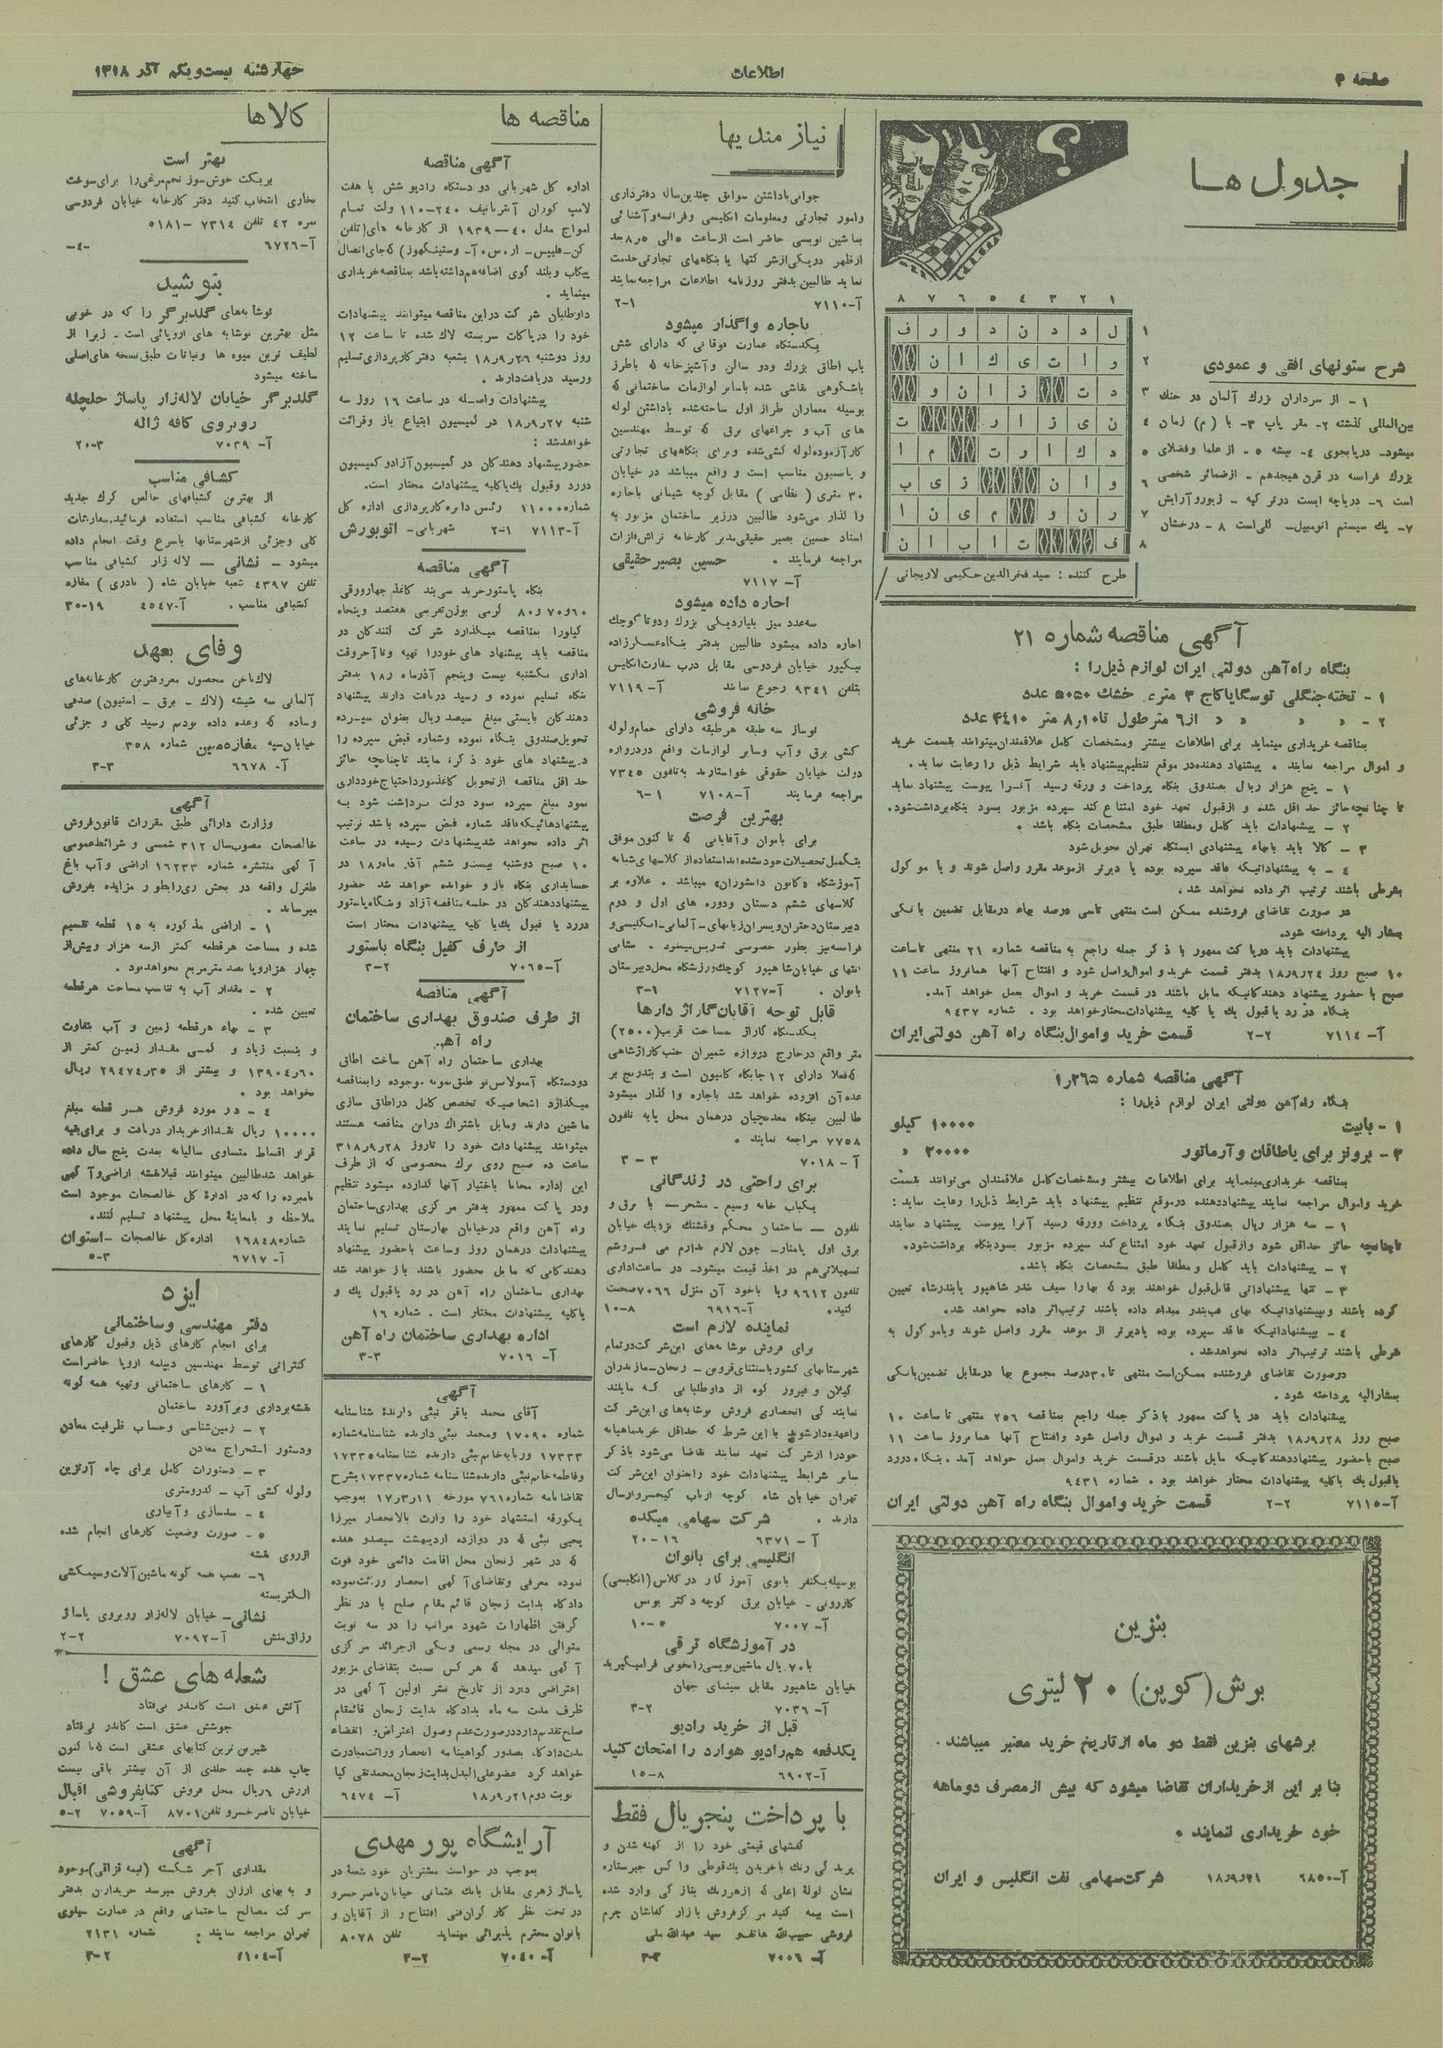 صفحه ۴
اطلاعات
چهارشنبه بیست‌ویکم آذر ۱۳۱۸
جدول ها
شرح ستونهای افقی و عمودی
۱ - از سرداران بزرك آلمان در جنك
بین‌المللی گذشته ۲- مقر پاپ ۳- با (م) زمان
میشود- دریاجوی ۴- بیشه ۵- از علما وفضلای
بزرك فرانسه در قرن هیجدهم - ازضمائر شخصی
است ۶- دریاچه ایست درتر کیه - زیوروآرایش
۷- یك سیستم اتومبیل- گلی‌است ۸ - درخشان
۱ ۲ ۳ ۴ ۵ ۶ ۷ ۸
۱ ل و د ن د و ر ف
۲ و ا ت ی ك ا ن
۳ د ت ز ا ن و
۴ ن ی ز ا ر ت
۵ د ك ا ر ت م ا
۶ و ا ن ز ی ب
۷ ر ن و م ی ن ا
۸ ف ت ا ب ا ن
طرح کننده : سید فخرالدین حکیمی لاریجانی
آگهی مناقصه شماره ۲۱
بنگاه راه‌آهن دولتی ایران لوازم ذیل‌را :
۱ - تخته‌جنگلی توسکایاکاج ۳ متری خشك ۵۰۵۰ عدد
۲ - » » » از۶ مترطول تا۸٫۱۰ متر ۴۴۱۰ عدد
بمناقصه خریداری مینماید برای اطلاعات بیشتر ومشخصات کامل علاقمندان‌میتوانند بقسمت خرید
و اموال مراجعه نمایند . پیشنهاد دهنده‌در موقع تنظیم‌پیشنهاد باید شرایط ذیل را رعایت نماید .
۱ - پنج هزار ریال بصندوق بنگاه پرداخت و ورقه رسید آنرا پیوست پیشنهاد نماید
تا چنانچه‌حائز حد اقل شده و ازقبول تعهد خود امتناع کند سپرده مزبور بسود بنگاه‌برداشت‌شود.
۲ - پیشنهادات باید کامل ومطلقا طبق مشخصات بنگاه باشد .
۳ - کالا باید بابهاء پیشنهادی ایستگاه تهران تحویل شود
۴ - به پیشنهاداتیکه فاقد سپرده بوده یا دیرتر ازموعد مقرر واصل شوند و یا مو کول
بشرطی باشند ترتیب اثر داده نخواهد شد .
در صورت تقاضای فروشنده ممکن است منتهی تاسی درصد بهاء درمقابل تضمین بانکی
بمشار الیه پرداخته شود.
پیشنهادات باید درپا کت ممهور با ذ کر جمله راجع به مناقصه شماره ۲۱ منتهی تاساعت
۱۰ صبح روز ۲۴ر۹ر۱۸ بدفتر قسمت خرید و اموال‌واصل شود و افتتاح آنها همانروز ساعت ۱۱
صبح با حضور پیشنهاد دهندکانیکه مایل باشند در قسمت خرید و اموال بعمل خواهد آمد.
بنگاه دررد یاقبول یك یا کلیه پیشنهادات‌مختارخواهد بود . شماره ۹۴۳۷
آ- ۷۱۱۴ ۲-۲ قسمت خرید واموال‌بنگاه راه آهن دولتی‌ایران
آگهی مناقصه شماره ۲۶۵ر۱
بنگاه راه‌آهن دولتی ایران لوازم ذیل‌را :
۱ - بابیت ۱۰۰۰۰ کیلو
۲- برونز برای یاطاقان وآرماتور ۲۰۰۰۰ »
بمناقصه خریداری‌مینماید برای اطلاعات بیشتر ومشخصات‌کامل علاقمندان می‌توانند بقسمت
خرید واموال مراجعه نمایند پیشنهاددهنده درموقع تنظیم پیشنهاد باید شرایط ذیل‌را رعایت نماید :
۱ - سه هزار ریال بصندوق بنگاه پرداخت وورقه رسید آنرا پیوست پیشنهاد نمایند
تاچنانچه حائز حداقل شود وازقبول تعهد خود امتناع کند سپرده مزبور بسودبنگاه برداشت‌شود.
۲ - پیشنهادات باید کامل و مطلقا طبق مشخصات بنگاه باشد.
۳ - تنها پیشنهاداتی قابل‌قبول خواهند بود که بهارا سیف بندر شاهپور یابندرشاه تعیین
کرده باشند وبپیشنهاداتیکه بهای فب‌بندر مبداء داده باشند ترتیب‌اثر داده نخواهد شد.
۴ - بپیشنهاداتیکه فاقد سپرده بوده یادیرتر از موعد مقرر واصل شوند ویاموکول به
شرطی باشند ترتیب‌اثر داده نخواهدشد.
درصورت تقاضای فروشنده ممکن‌است منتهی تا۳۰درصد مجموع بها درمقابل تضمین‌بانکی
بمشارالیه پرداخته شود .
پیشنهادات باید در پا کت ممهور باذ کر جمله راجع بمناقصه ۲۵۶ منتهی تا ساعت ۱۰
صبح روز ۲۸ر۹ر۱۸ بدفتر قسمت خرید و اموال واصل شود وافتتاح آنها همانروز ساعت ۱۱
صبح باحضور پیشنهاددهندکانیکه مایل باشند درقسمت خرید واموال بعمل خواهد آمد . بنگاه دررد
یاقبول یك یاکلیه پیشنهادات مختار خواهد بود . شماره ۹۴۳۱
آ-۷۱۱۵ ۲-۲ قسمت خرید واموال بنگاه راه آهن دولتی ایران
بنزین
برش (کوپن) ۲۰ لیتری
برشهای بنزین فقط دو ماه ازتاریخ خرید معتبر میباشند.
بنا بر این ازخریداران تقاضا میشود که بیش ازمصرف دوماهه
خود خریداری ننمایند .
آ-۶۸۵۰ ۲۱ر۹ر۱۸ شرکت‌سهامی نفت انگلیس و ایران
نیاز مندیها
جوانی باداشتن سوابق چندین‌ساله دفترداری
وامور تجارتی ومعلومات انگلیسی وفرانسه‌وآشنائی
بماشین نویسی حاضر است ازساعت ۵الی ۸٫۵بعد
ازظهر دریکی‌ازشر کتها یا بنگاههای تجارتی‌خدمت
نماید طالبین بدفتر روزنامه اطلاعات مراجعه‌نمایند
آ-۷۱۱۰ ۲-۱
باجاره واگذار میشود
یکدستگاه عمارت فوقانی که دارای شش
باب اطاق بزرك ودو سالن وآشپزخانه که باطرز
باشکوهی نقاشی شده باسایر لوازمات ساختمانی که
بوسیله معماران طراز اول ساخته‌شده باداشتن لوله
های آب و چراغهای برق که توسط مهندسین
کارآزموده‌لوله کشی‌شده وبرای بنگاههای تجارتی
و پانسیون مناسب است و واقع میباشد در خیابان
۳۰ متری ( نظامی ) مقابل کوچه شیبانی باجاره
وا گذار می‌شود طالبین درزیر ساختمان مزبور به
استاد حسین بصیر حقیقی‌مدیر کارخانه تراش‌فلزات
مراجعه فرمایند . حسین بصیرحقیقی
آ- ۷۱۱۷
اجاره داده میشود
سه‌عدد میز بلیاردیکی بزرك ودوتا کوچك
اجاره داده میشود طالبین بدفتر بنگاه‌عسگرزاده
نیکپور خیابان فردوسی مقابل درب سفارت‌انگلیس
بتلفن ۹۳۴۱ رجوع نمایند آ-۷۱۱۹
خانه فروشی
نوساز سه طبقه هرطبقه دارای حمام‌ولوله
کشی برق وآب وسایر لوازمات واقع دردروازه
دولت خیابان حقوقی خواستارند به‌تلفون ۷۳۴۵
مراجعه فرمایند آ-۷۱۰۸ ۶-۱
بهترین فرصت
برای بانوان و آقایانی که تا کنون موفق
بتکمیل تحصیلات خودنشده‌اند استفاده‌از کلاسهای‌شبانه
آموزشگاه «کانون دانشوران» میباشد . علاوه بر
کلاسهای ششم دبستان ودوره های اول و دوم
دبیرستان دختران‌وپسران زبانهای- آلمانی-انگلیسی‌و
فرانسه‌نیز بطور خصوصی تدریس‌میشود . نشانی
انتهای خیابان‌شاهپور کوچك‌ورزشگاه محل دبیرستان
بانوان . آ-۷۱۲۷ ۳-۱
قابل توجه آقایان‌گاراژ دارها
یکدستگاه گاراژ بمساحت قریب(۲۵۰۰)
متر واقع درخارج دروازه شمیران جنب‌گاراژشاهی
که‌فعلا دارای ۱۲ جایگاه کامیون است و بتدریج بر
عده‌آن افزوده خواهد شد باجاره وا گذار میشود
طالبین ببنگاه معدنچیان درهمان محل یابه تلفون
۷۷۵۸ مراجعه نمایند .
آ - ۷۰۱۸ ۳ - ۳
برای راحتی در زندگانی
یکباب خانه وسیع - مشجر - با برق و
تلفون - ساختمان محکم وقشنك نزدیك خیابان
برق اول پامنار- چون لازم ندارم می فروشم
تسهیلاتی‌هم در اخذ قیمت میشود- در ساعات‌اداری
تلفون ۹۶۱۲ ویا باخود آن منزل ۷۰۶۶ صحبت
کنید. آ-۶۹۱۶ ۱۰-۸
نماینده لازم است
برای فروش نوشابه‌های این‌شر کت‌درتمام
شهرستانهای کشور باستثنای‌قزوین - زنجان-مازندران
گیلان و فیروز کوه از داوطلبانی که مایلند
نمایندگی انحصاری فروش نوشابه‌های این‌شر کت
راعهده‌دارشوند با این شرط که حداقل خریدماهیانه
خودرا ازشر کت تعهد نمایند تقاضا می‌شود باذکر
سایر شرایط پیشنهادات خود رابعنوان این‌شر کت
تهران خیابان شاه کوچه ارباب کیخسروارسال
دارند . شرکت سهامی میکده
آ - ۶۳۷۱ ۲۰-۱۶
انگلیسی برای بانوان
بوسیله‌یکنفر بانوی آموز گار در کلاس(انگلیسی)
کازرونی - خیابان برق کوچه دکتر یونس
آ- ۷۰۰۷ ۱۰-۵
در آموزشگاه ترقی
با۷۰ریال ماشین‌نویسی‌رابخوبی فرامیگیرید
خیابان شاهپور مقابل سینمای جهان
آ- ۷۰۳۶ ۳-۲
قبل از خرید رادیو
یکدفعه هم‌رادیو هوارد را امتحان کنید
آ-۶۹۰۲ ۱۵-۸
با پرداخت پنجریال فقط
کفشهای قیمتی خود را از کهنه شدن و
پرید گی رنك باخریدن یك‌قوطی وا کس جیرستاره
نشان لولهٔ اعلی که ازهررنك بتاز گی وارد شده
است بیمه کنید مرکزفروش بازار کفاشان چرم
فروشی حبیب‌الله هاتف‌و سید عبدالله‌ملی
آ- ۷۰۰۶ ۳-۳
مناقصه ها
آگهی مناقصه
اداره کل شهربانی دو دستگاه رادیو شش یا هفت
لامپ کوران آلترناتیف ۲۴۰-۱۱۰ ولت تمام
امواج مدل ۴۰-۱۹۳۹ از کارخانه های(تلفن
کن-فلیپس- ار.س.آ- وستینکهوز) که‌جای‌اتصال
پیکاپ وبلند گوی اضافه‌هم‌داشته‌باشد بمناقصه‌خریداری
مینماید .
داوطلبان شر کت دراین مناقصه میتوانند پیشنهادات
خود را درپاکات سربسته لاك شده تا ساعت ۱۲
روز دوشنبه ۲۶ر۹ر۱۸ بشعبه دفتر کارپردازی‌تسلیم
ورسید دریافت‌دارند .
پیشنهادات واصله در ساعت ۱۶ روز سه
شنبه ۲۷ر۹ر۱۸ در کمیسیون ابتیاع باز وقرائت
خواهدشد :
حضورپیشنهاد دهندکان در کمیسیون آزادو کمیسیون
دررد وقبول یك‌یاکلیه پیشنهادات مختار است.
شماره۱۱۰۰۰ رئیس دایره‌کارپردازی اداره کل
آ-۷۱۱۳ ۲-۱ شهربانی- اتوبورش
آگهی مناقصه
بنگاه پاستورخرید سی‌بند کاغذ چهارورقی
۶۰و۷۰و۸۰ گرمی بوزن‌تقریبی هفتصد وپنجاه
کیلورا بمناقصه میگذارد شر کت کنندکان در
مناقصه باید پیشنهاد های خودرا تهیه وتا آخروقت
اداری یکشنبه بیست وپنجم آذرماه ۱۸ بدفتر
بنگاه تسلیم نموده و رسید دریافت دارند پیشنهاد
دهندکان بایستی مبلغ سیصد ریال بعنوان سپرده
تحویل‌صندوق بنگاه نموده وشماره قبض سپرده را
درپیشنهاد های خود ذ کر نمایند تاچنانچه حائز
حد اقل مناقصه ازتحویل کاغذموردِاحتیاج‌خودداری
نمود مبلغ سپرده بسود دولت برداشت شود به
پیشنهادهائیکه‌فاقد شماره قبض سپرده باشد ترتیب
اثر داده نخواهد شدپیشنهادات رسیده در ساعت
۱۰ صبح دوشنبه بیست‌و ششم آذر ماه۱۸ در
حسابداری بنگاه باز و خوانده خواهد شد حضور
پیشنهاددهندکان در جلسه مناقصه آزاد وبنگاه‌پاستور
دررد یا قبول یك‌یا کلیه پیشنهادات مختار است
از طرف کفیل بنگاه پاستور
آ-۷۰۶۵ ۳-۲
آگهی مناقصه
از طرف صندوق بهداری ساختمان
راه آهن
بهداری ساختمان راه آهن ساخت اطاق
دودستگاه آمبولانس‌نو طبق‌نمونه موجوده رابمناقصه
میگذارد اشخاصیکه تخصص کامل دراطاق سازی
ماشین دارند ومایل باشتراك دراین مناقصه هستند
میتوانند پیشنهادات خود را تاروز ۲۸ر۹ر۳۱۸
ساعت ده صبح روی برك مخصوصی که از طرف
این اداره مجانا باختیار آنها گذارده میشود تنظیم
ودر پا کت ممهور بدفتر مر کزی بهداری‌ساختمان
راه آهن واقع درخیابان بهارستان تسلیم نمایند
پیشنهادات درهمان روز وساعت باحضور پیشنهاد
دهندکانی‌که مایل بحضور باشند باز خواهد شد
بهداری ساختمان راه آهن در رد یاقبول یك و
یاکلیه پیشنهادات مختار است . شماره ۱۶
اداره بهداری ساختمان راه آهن
آ- ۷۰۱۶ ۳-۳
آگهی
آقای محمد باقر نبئی دارندهٔ شناسنامه
شماره ۱۷۰۹۰ ومحمد نبئی دارنده شناسنامه‌شماره
۱۷۳۳۳ وربابه‌خانم‌نبئی دارنده شناسنامه۱۷۳۳۵
وفاطمه‌خانم‌نبئی دارنده‌شناسنامه شماره۱۷۳۳۷بشرح
تقاضانامه شماره۷۶۱ مورخه ۱۱ر۳ر۱۷ بموجب
یکورقه استشهاد خود را وارث بالانحصار میرزا
یحیی نبئی که در دوازده اردیبهشت سیصدو هفده
که در شهر زنجان محل اقامت دائمی خود فوت
نموده معرفی وتقاضای‌آگهی انحصار وراثت‌نموده
دادگاه بدایت زنجان قائم‌مقام صلح با در نظر
گرفتن اظهارات شهود مراتب را در سه نوبت
متوالی در مجله رسمی ویکی ازجرائد مرکزی
آ گهی میدهد که هر کس نسبت بتقاضای مزبور
اعتراضی دارد از تاریخ نشر اولین آ گهی در
ظرف مدت سه ماه بدادگاه بدایت زنجان قائمقام
صلح‌تقدیم‌دارددرصورت‌عدم وصول اعتراض‌و انقضاء
مدت‌دادگاه بصدور گواهینامه انحصار وراثت‌مبادرت
خواهد کرد عضوعلی‌البدل‌بدایت‌زنجان‌محمدتقی کیا
نوبت دوم۲۱ر۹ر۱۸ آ- ۶۴۷۴
آرایشگاه پور مهدی
بموجب در خواست مشتریان خود شعبهٔ در
پاساژ زهری مقابل بانك عثمانی خیابان‌ناصرخسرو
در تحت نظر کار گران‌فنی افتتاح و از آقایان و
بانوان محترم پذیرائی مینماید تلفن ۸۰۷۸
آ- ۷۰۴۰ ۳-۲
کالاها
بهتر است
بریکت خوش‌سوز تخم‌مرغی‌را برای‌سوخت
بخاری انتخاب کنید دفتر کارخانه خیابان فردوسی
نمره ۴۲ تلفن ۷۳۱۴ -۵۱۸۱
آ-۶۷۲۶ -۴-
بنوشید
نوشابه‌های گلدبرگر را که در خوبی
مثل بهترین نوشابه های اروپائی است - زیرا از
لطیف ترین میوه ها ونباتات طبق‌نسخه های‌اصلی
ساخته میشود
گلدبرگر خیابان لاله‌زار پاساژ حلچله
روبروی کافه ژاله
آ- ۷۰۳۹ ۲۰-۳
کشبافی مناسب
از بهترین کشبافیهای خالص کرك جدید
کارخانه کشبافی مناسب استفاده فرمائید.سفارشات
کلی وجزئی ازشهرستانها باسرع وقت انجام داده
میشود - نشانی - لاله زار کشبافی مناسب
تلفن ۴۳۹۷ شعبه خیابان شاه ( نادری ) مغازه
کشبافی مناسب . آ-۴۵۴۷ ۳۰-۱۹
وفای بعهد
لاك‌ناخن محصول معروفترین کارخانه‌های
آلمانی سه شیشه (لاك - برق - استیون) صدفی
وساده که وعده داده بودیم رسید کلی و جزئی
خیابان‌سپه مغازه‌مبین شماره ۳۵۸
آ- ۶۶۷۸ ۳-۳
آگهی
وزارت دارائی طبق مقررات قانون‌فروش
خالصجات مصوب‌سال ۳۱۲ شمسی و شرائط‌عمومی
آ گهی منتشره شماره ۱۶۲۳۳ اراضی و آب باغ
طغرل واقعه در بخش ری‌رابطور مزایده بفروش
میرساند .
۱ - اراضی مذ کوره به ۱۵ قطعه تقسیم
شده و مساحت هرقطعه کمتر ازسه هزار وبیش‌از
چهار هزاروپانصد مترمربع نخواهدبود .
۲ - مقدار آب به تناسب مساحت هرقطعه
تعیین شده .
۳ - بهاء هرقطعه زمین و آب بتفاوت
و بنسبت زیاد و کمی مقدار زمین کمتر از
۶۰ر۱۳۹۰۴ و بیشتر از ۳۵ر۲۹۴۷۴ ریال
نخواهد بود .
۴ - در مورد فروش هر قطعه مبلغ
۱۰۰۰۰ ریال نقداازخریدار دریافت و برای‌بقیه
قرار اقساط متساوی سالیانه بمدت پنج سال داده
خواهد شدطالبین میتوانند قبلانقشه اراضی‌وآ گهی
نامبرده را که در ادارهٔ کل خالصجات موجود است
ملاحظه و بامعاینهٔ محل پیشنهاد تسلیم کنند.
شماره۱۶۸۴۸ اداره‌کل خالصجات -استوان
آ- ۶۷۱۷ ۵-۳
ایزد
دفتر مهندسی وساختمانی
برای انجام کارهای ذیل وقبول کارهای
کنتراتی توسط مهندسین دیپلمه اروپا حاضراست
۱ - کارهای ساختمانی وتهیه همه گونه
نقشه‌برداری وبرآورد ساختمان
۲ - زمین‌شناسی وحساب ظرفیت معادن
ودستور استخراج معادن
۳ - دستورات کامل برای چاه آرتزین
ولوله کشی آب - کدرومتری
۴ - سدسازی وآبیاری
۵ - صورت وضعیت کارهای انجام شده
ازروی نقشه
۶- نصب همه گونه ماشین‌آلات‌وسیمکشی
الکتریسته
نشانی- خیابان لاله‌زار روبروی پاساژ
رزاق‌منش آ-۷۰۹۲ ۲-۲
شعله های عشق !
آتش عشق است کاندر نی‌فتاد
جوشش عشق است کاندر می‌فتاد
شیرین ترین کتابهای عشقی است که‌تا کنون
چاپ شده چند جلدی از آن بیشتر باقی نیست
ارزش ۶ریال محل فروش کتابفروشی اقبال
خیابان ناصرخسرو تلفن۸۷۰۱ آ-۷۰۵۹ ۵-۲
آگهی
مقداری آجر شکسته (نیمه قزاقی)موجود
و به‌بهای ارزان بفروش میرسد خریداران بدفتر
شر کت مصالح ساختمانی واقع در عمارت سیلوی
تهران مراجعه نمایند : شماره ۲۱۳۱
آ-۷۱۰۴ ۳-۲